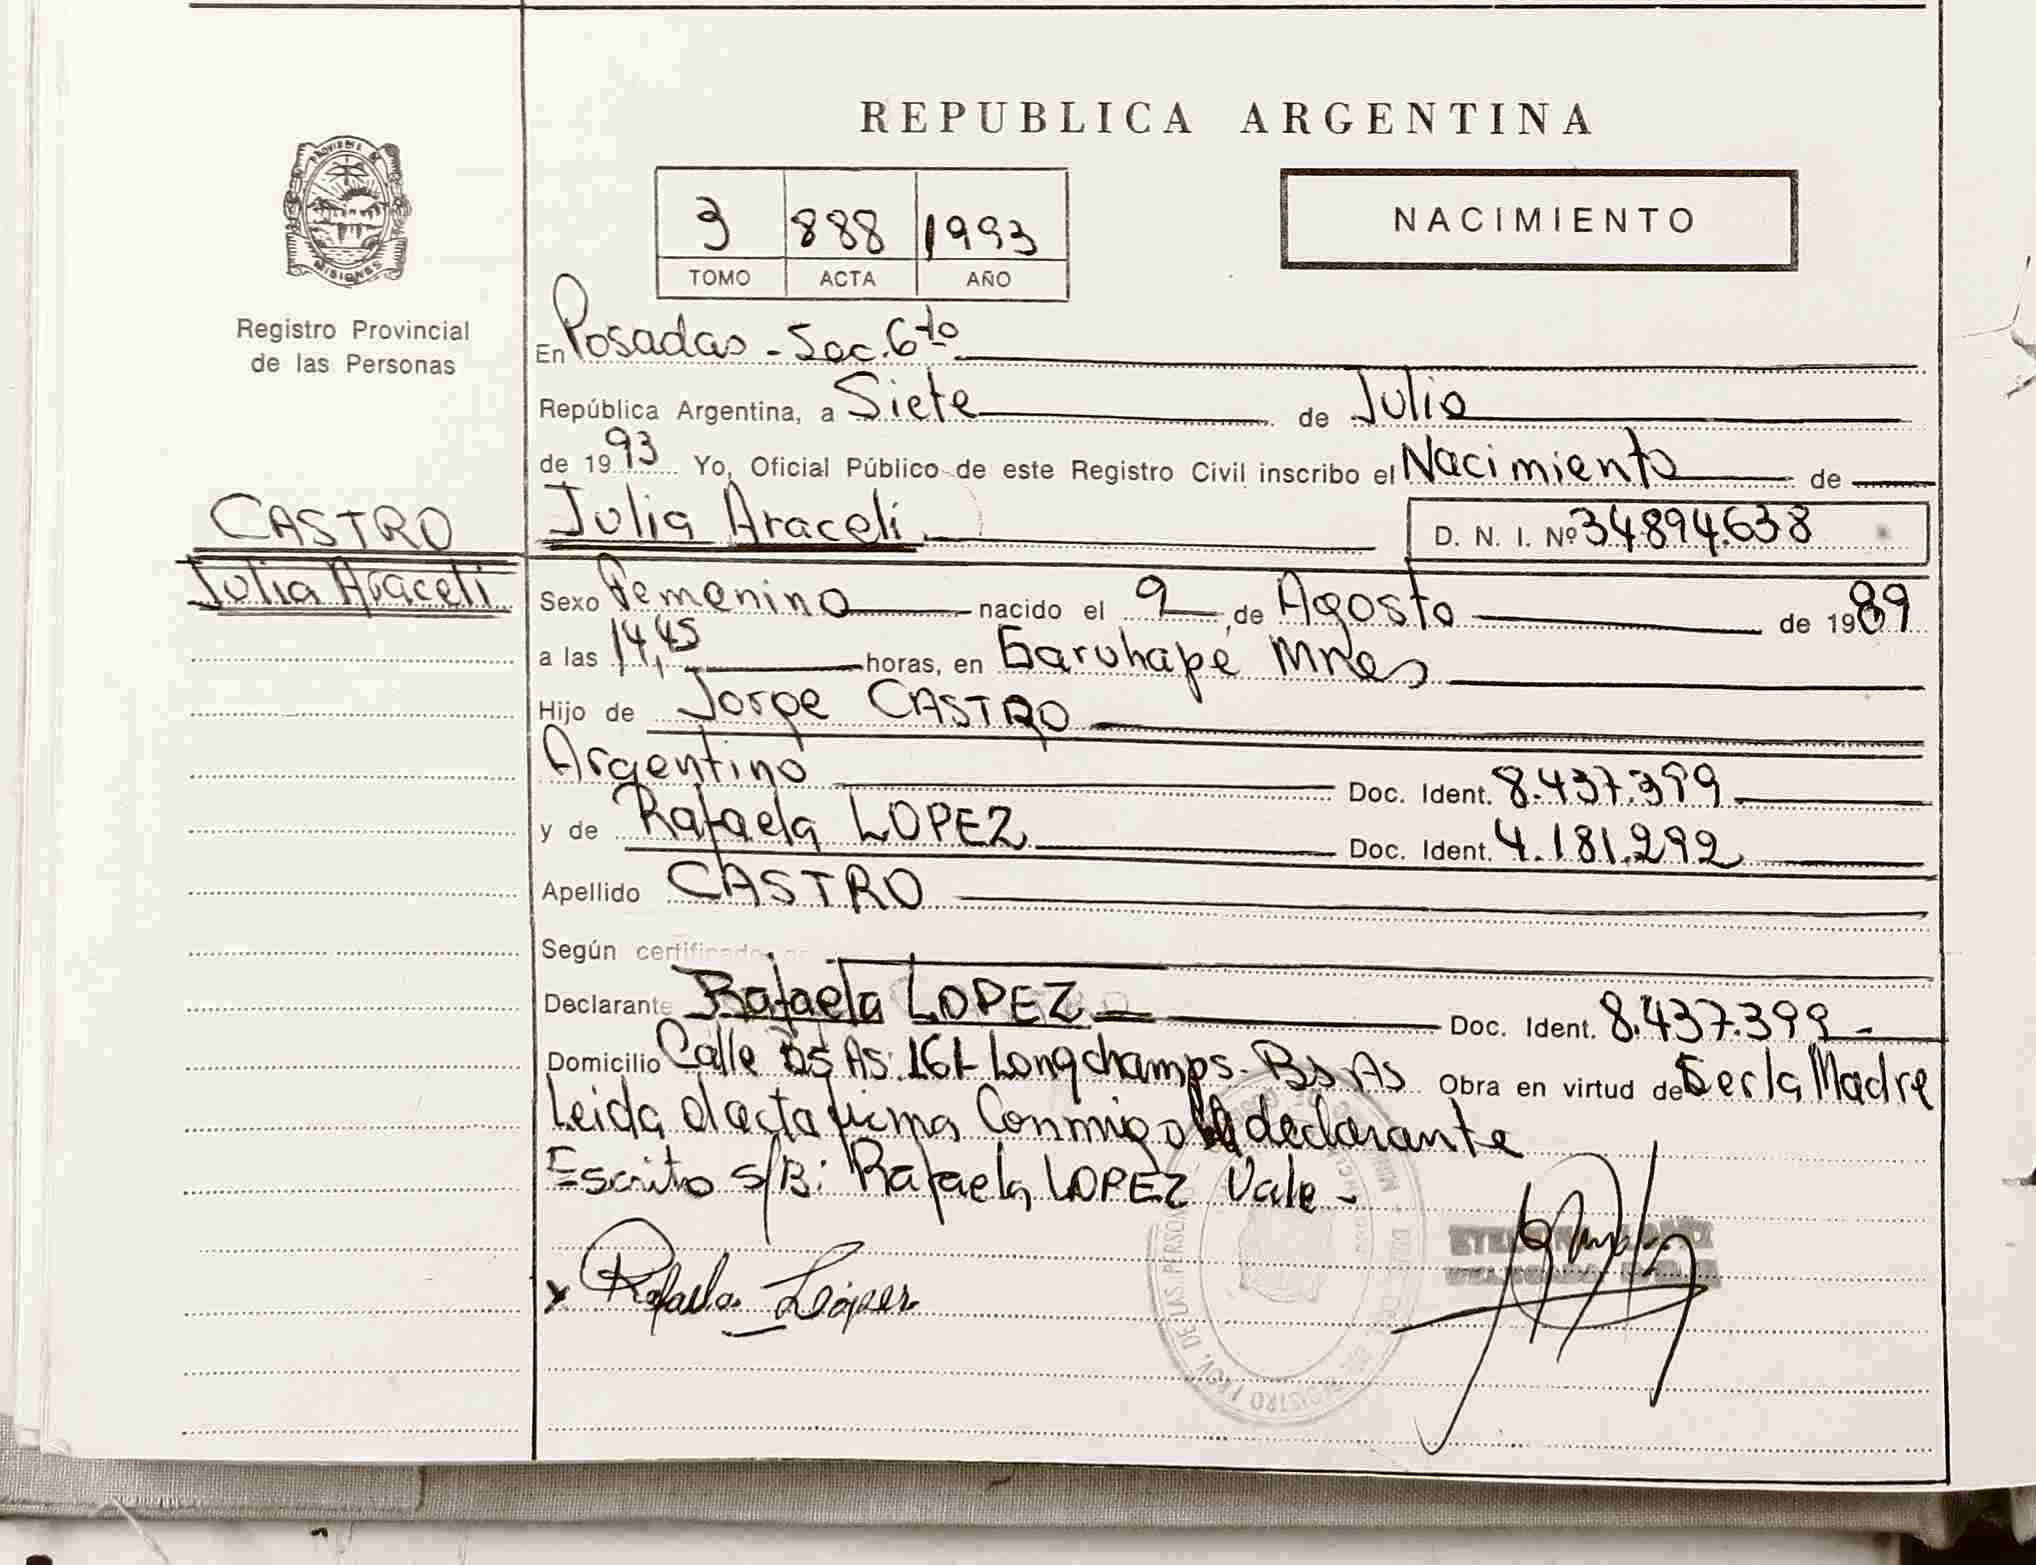 REPUBLICA ARGENTINA
PROVINCIA DE
MISIONES
Registro Provincial
de las Personas
3 888 1993
TOMO ACTA AÑO
NACIMIENTO
En Posadas - Sec. 6to
República Argentina, a Siete de Julio
de 1993 Yo, Oficial Público de este Registro Civil inscribo el Nacimiento de
CASTRO
Julia Araceli
Julia Araceli D. N. I. Nº 34.894.638
Sexo Femenino nacido el 9 de Agosto de 1989
a las 14,45 horas, en Garuhapé Mnes
Hijo de Jorge CASTRO
Argentino Doc. Ident. 8.437.399
y de Rafaela LOPEZ Doc. Ident. 4.181.292
Apellido CASTRO
Según certificado
Declarante Rafaela LOPEZ Doc. Ident. 8.437.399 -
Domicilio Calle Bs As. 161 Longchamps - Bs As Obra en virtud de Ser la Madre
Leida el acta firma Conmigo la declarante
Escrito s/B: Rafaela LOPEZ Vale -
x Rafaela López